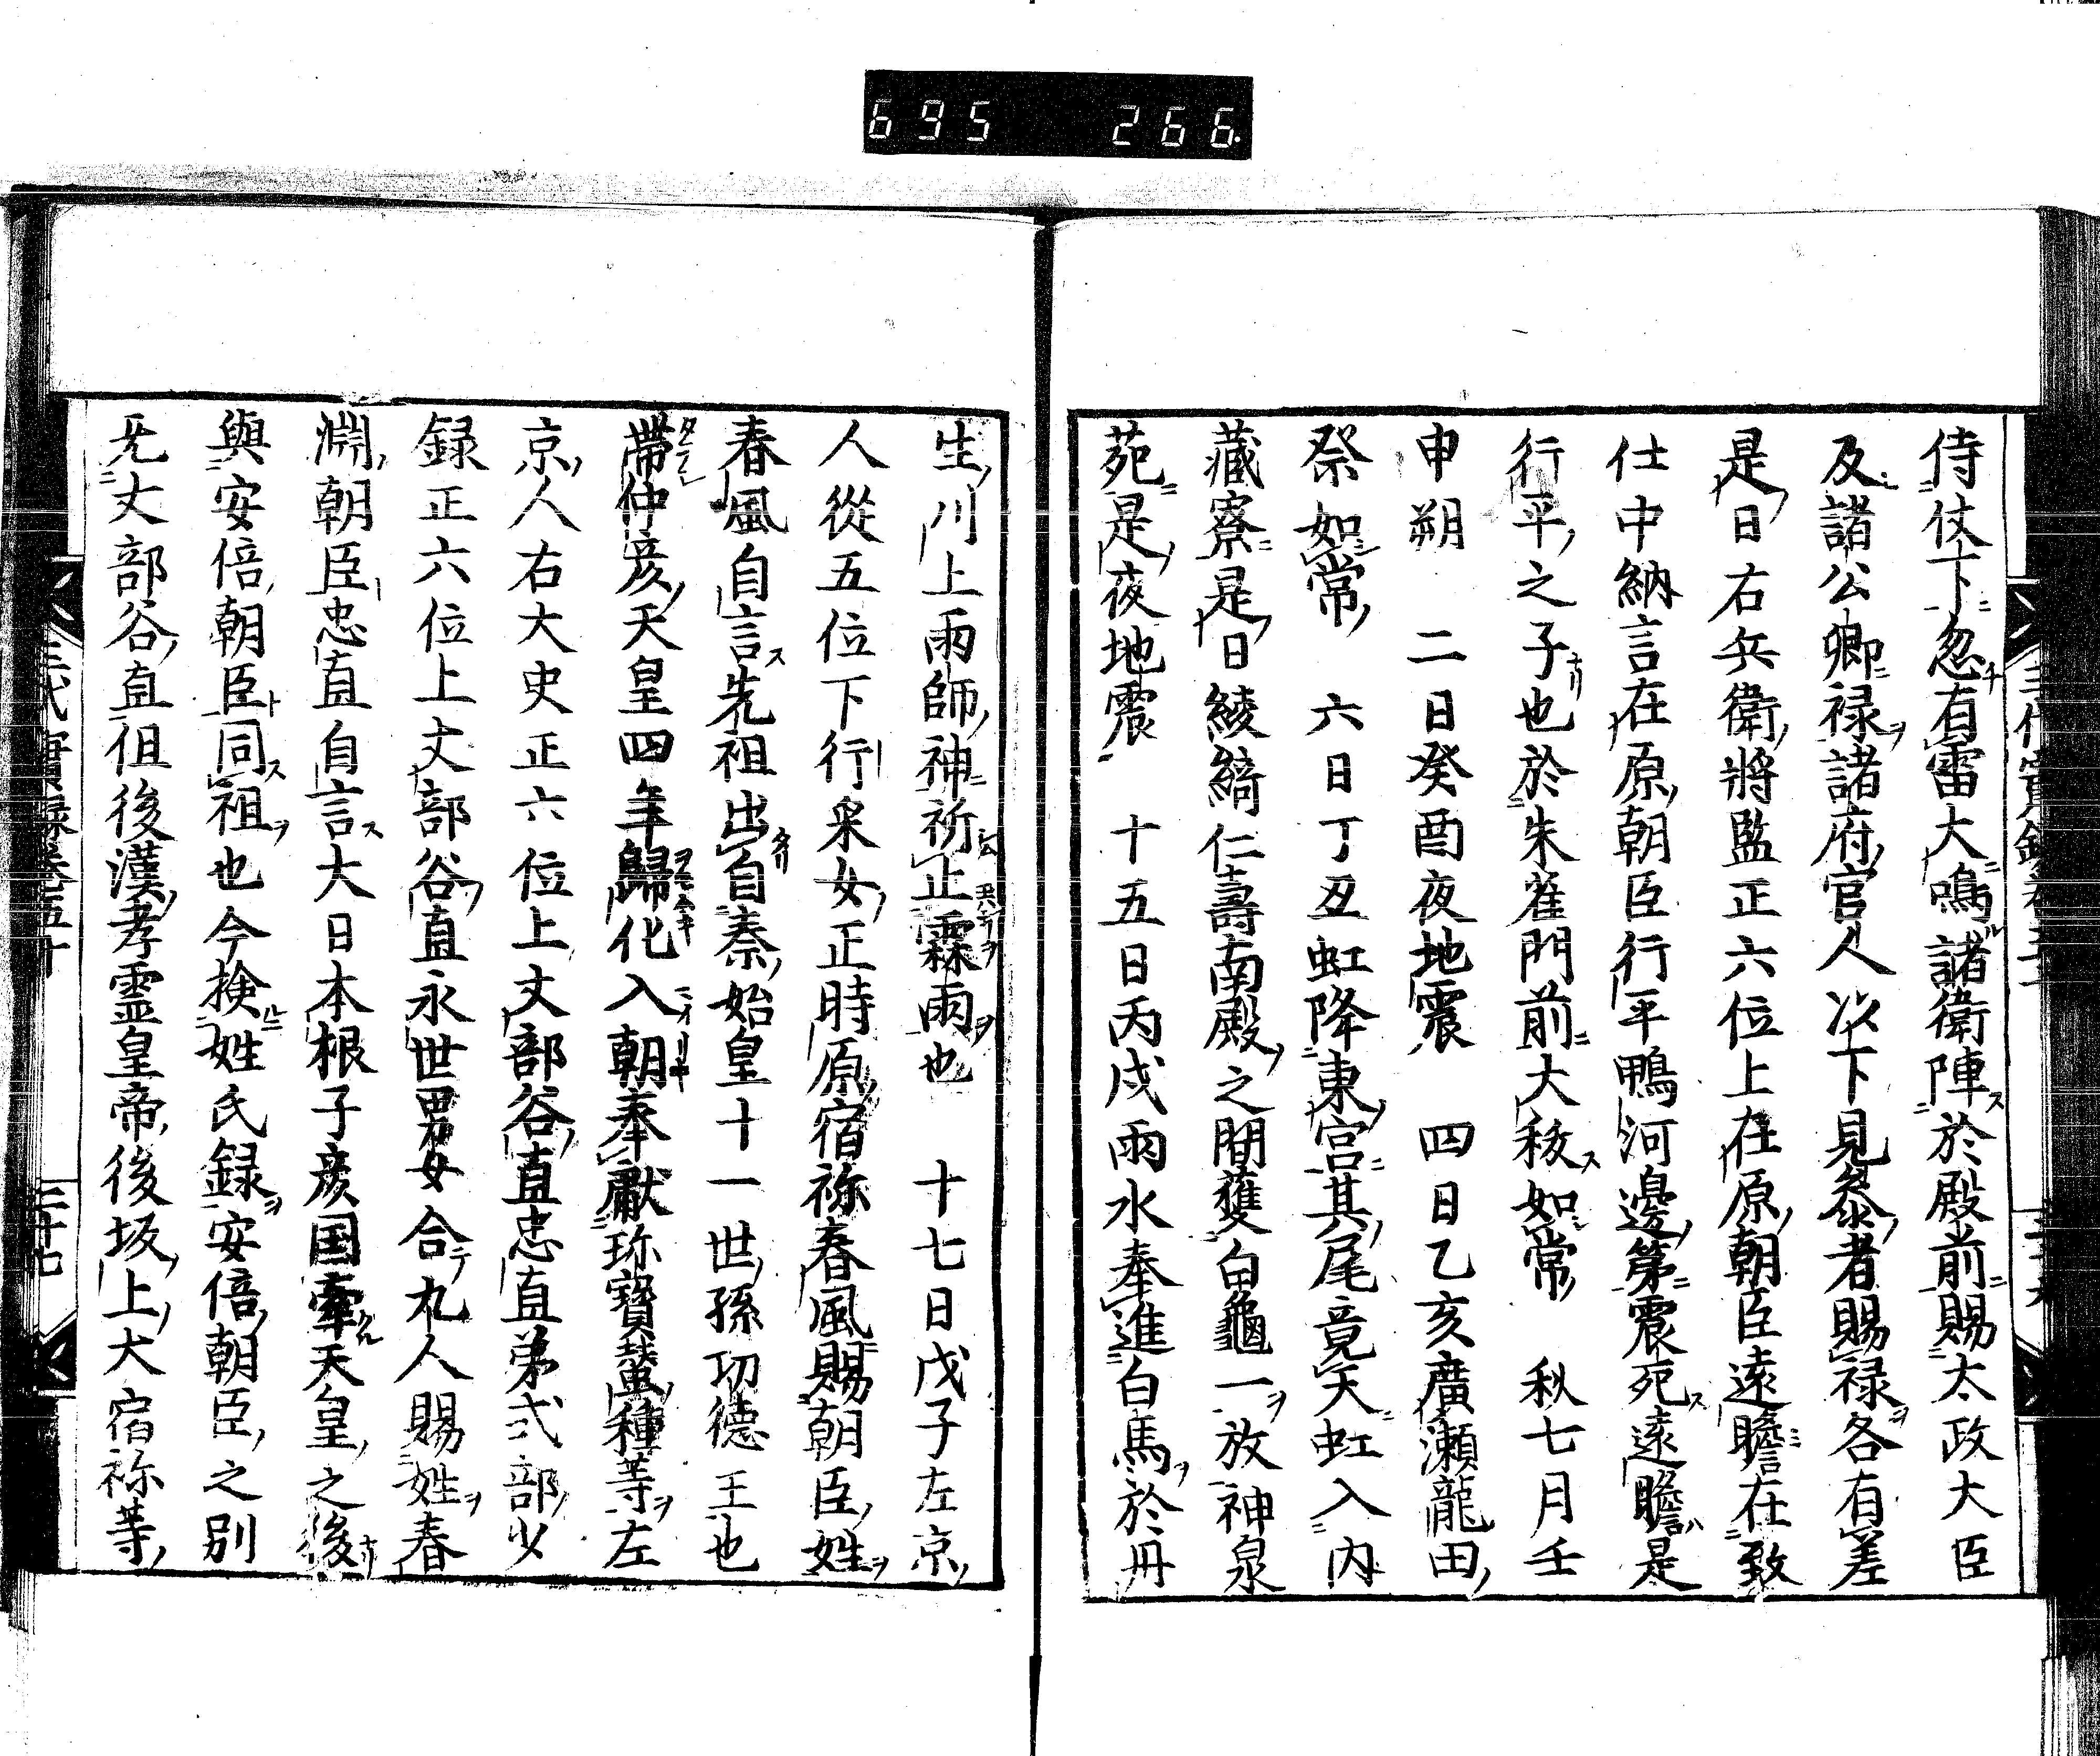 695 266.
侍仗下忽有雷大鳴諸衛陣於殿前賜太政大臣
及諸公卿禄諸府官人以下見参者賜禄各有差
是日右兵衛將監正六位上在原朝臣遠瞻在致
仕中納言在原朝臣行平鴨河邊第震死遠瞻是
行平之子也於朱雀門前大秡如常 秋七月壬
申朔 二日癸酉夜地震 四日乙亥廣瀬龍田
祭如常 六日丁丑虹降東宮其尾竟天虹入内
藏寮是日綾綺仁壽南殿之間獲白龜一放神泉
苑是夜地震 十五日丙戌雨水奉進白馬於丹
生川上雨師神祈止霖雨也 十七日戊子左京
人從五位下行采女正時原宿祢春風賜朝臣姓
春風自言先祖出自秦始皇十一世孫功德王也
帶仲彦天皇四年歸化入朝奉獻珎寶蠶種等左
京人右大史正六位上丈部谷直忠直弟式部少
録正六位上丈部谷直永世男女合九人賜姓春
淵朝臣忠直自言大日本根子彦国牽天皇之後
與安倍朝臣同祖也今撿姓氏録安倍朝臣之別
无丈部谷直但後漢孝霊皇帝後坂上大宿祢等
三代實録卷五十 三十七